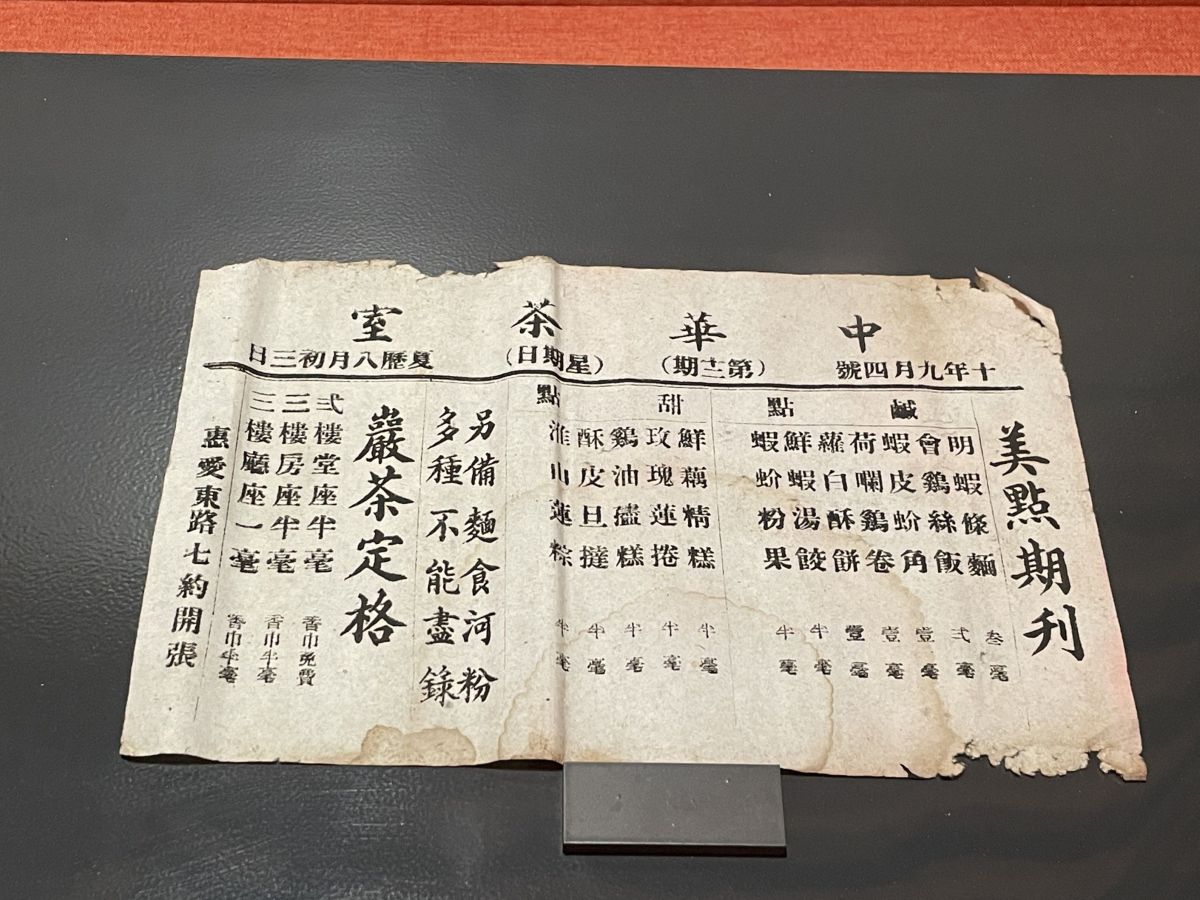 中華茶室
十年九月四號 (第十二期) (星期日) 夏歷八月初三日
美點期刊
鹹點
明蝦條麵 叁毫
會鷄絲飯 弍毫
蝦皮蚧角 壹毫
荷囒鷄卷 壹毫
蘿白酥餅 壹毫
鮮蝦湯餃 半毫
蝦蚧粉果 半毫
甜點
鮮藕精糕 半毫
玫瑰蓮捲 半毫
鷄油糕 半毫
酥皮旦撻 半毫
淮山蓮粽 半毫
另備麵食河粉
多種不能盡錄
嚴茶定格
弍樓堂座半毫 香巾免費
三樓房座半毫 香巾半毫
三樓廳座一毫 香巾半毫
惠愛東路七約開張